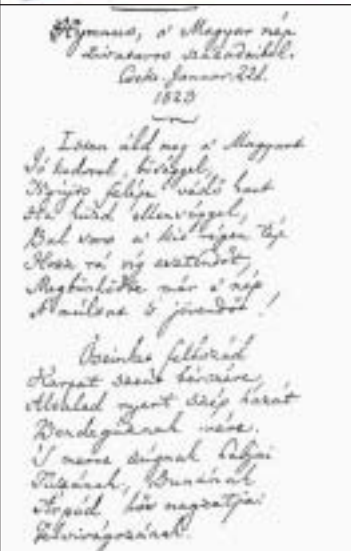 Hymnus, a' Magyar nép
zivataros századaiból.
Cseke. Januar. 22d.
1823
Isten áld meg a' Magyart
Jó kedvvel, bőséggel,
Nyújts feléje védő kart
Ha küzd ellenséggel,
Bal sors a' kit régen tép
Hozz rá víg esztendőt,
Megbűnhődte már e' nép
A' múltat 's jövendőt!
Őseinket felhozád
Kárpát szent bérczére,
Általad nyert szép hazát
Bendegúznak vére.
'S merre zúgnak habjai
Tiszának, Dunának
Árpád hős magzatjai
Felvirágozának.